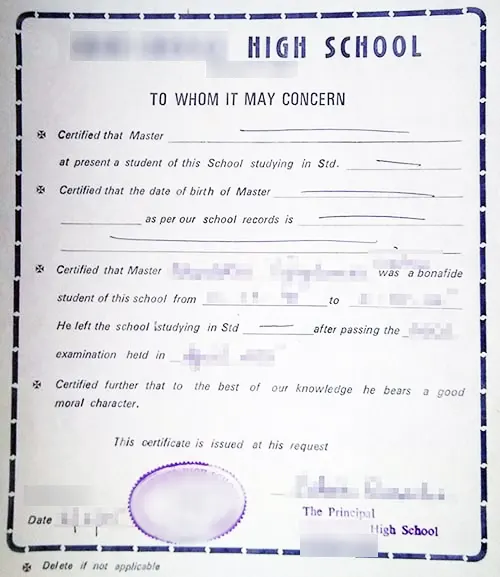 HIGH SCHOOL
TO WHOM IT MAY CONCERN
Certified that Master
at present a student of this School studying in Std.
Certified that the date of birth of Master
as per our school records is
Certified that Master was a bonafide
student of this school from to
He left the school studying in Std after passing the
examination held in
Certified further that to the best of our knowledge he bears a good
moral character.
This certificate is issued at his request
Date
The Principal
High School
Delete if not applicable